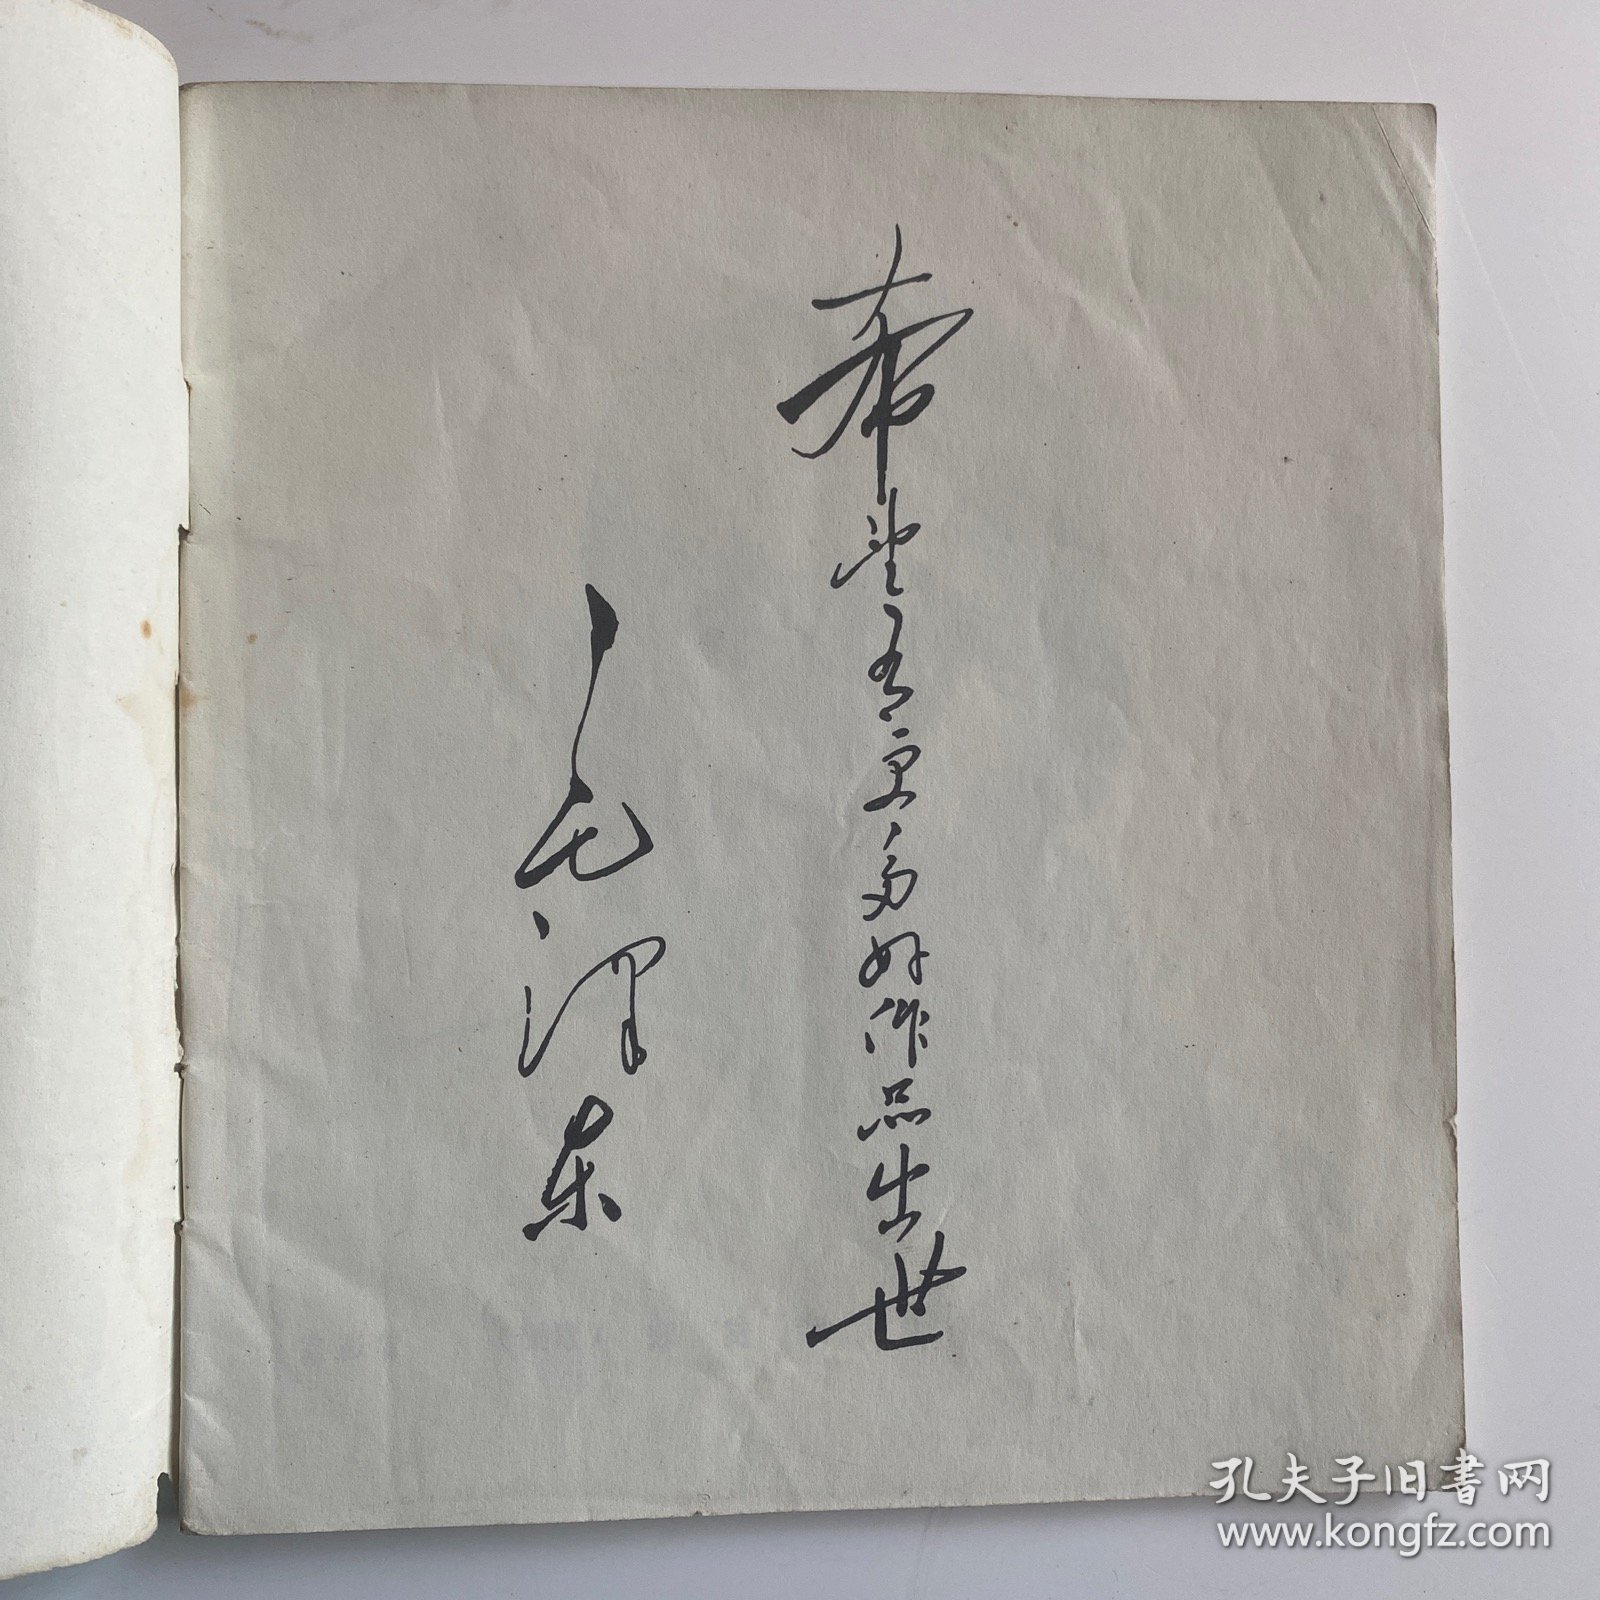 希望有更多好作品出世
毛泽东
孔夫子旧書网
www.kongfz.com